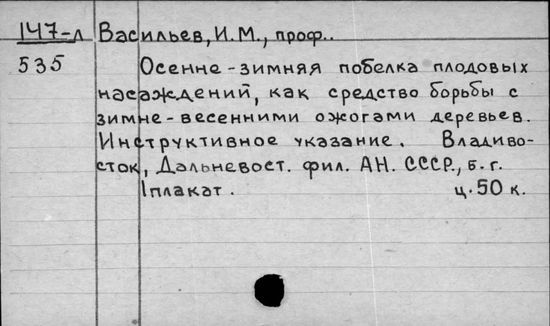 147-л Васильев, И.М., проф..
535 Осенне-зимняя побелка плодовых
насаждений, как средство борьбы с
зимне-весенними ожогами деревьев.
Инструктивное указание. Владиво-
сток, Дальневост. фил. АН. СССР., б.г.
1плакат. ц.50 к.